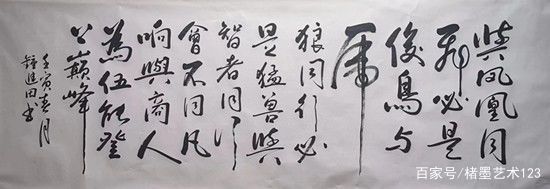 與鳳凰同
飛必是
俊鳥与
虎
狼同行必
是猛兽與
智者同行
會不同凡
响與高人
為伍能登
上巅峰
壬寅春月
鍾進田书
百家号/楮墨艺术123